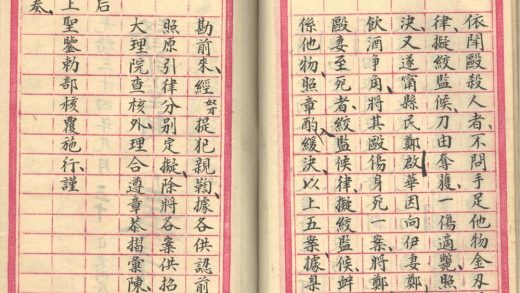 依鬥毆殺人者、不問手足他物金刃
律、擬絞監候、刀由奪獲、一傷適斃、照
決、又遂甯縣民鄭啟華因向伊妻鄭
飲酒爭角、將其毆傷身死一案、將鄭
毆妻至死者、絞監候律、擬絞監候、衅
係他物、照章酌緩決、以上五案、據臬
勘前來、經奴才提犯親鞫、據各供認前
照原引律分別定擬、除將各案供招
大理院查核外、理合遵章恭摺彙陳
后
上聖鑒勅部核覆施行、謹
奏、